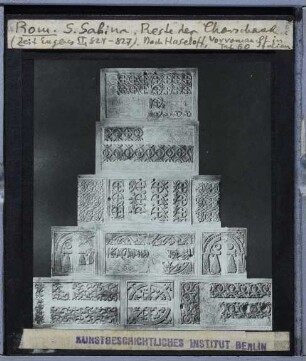 Rom. S. Sabina, Reste der Chorschrank
(Zeit Eugens II, 824-827). Nach Haseloff, Vorroman. Plastik in
Taf. 60 Italien
KUNSTGESCHICHTLICHES INSTITUT BERLIN